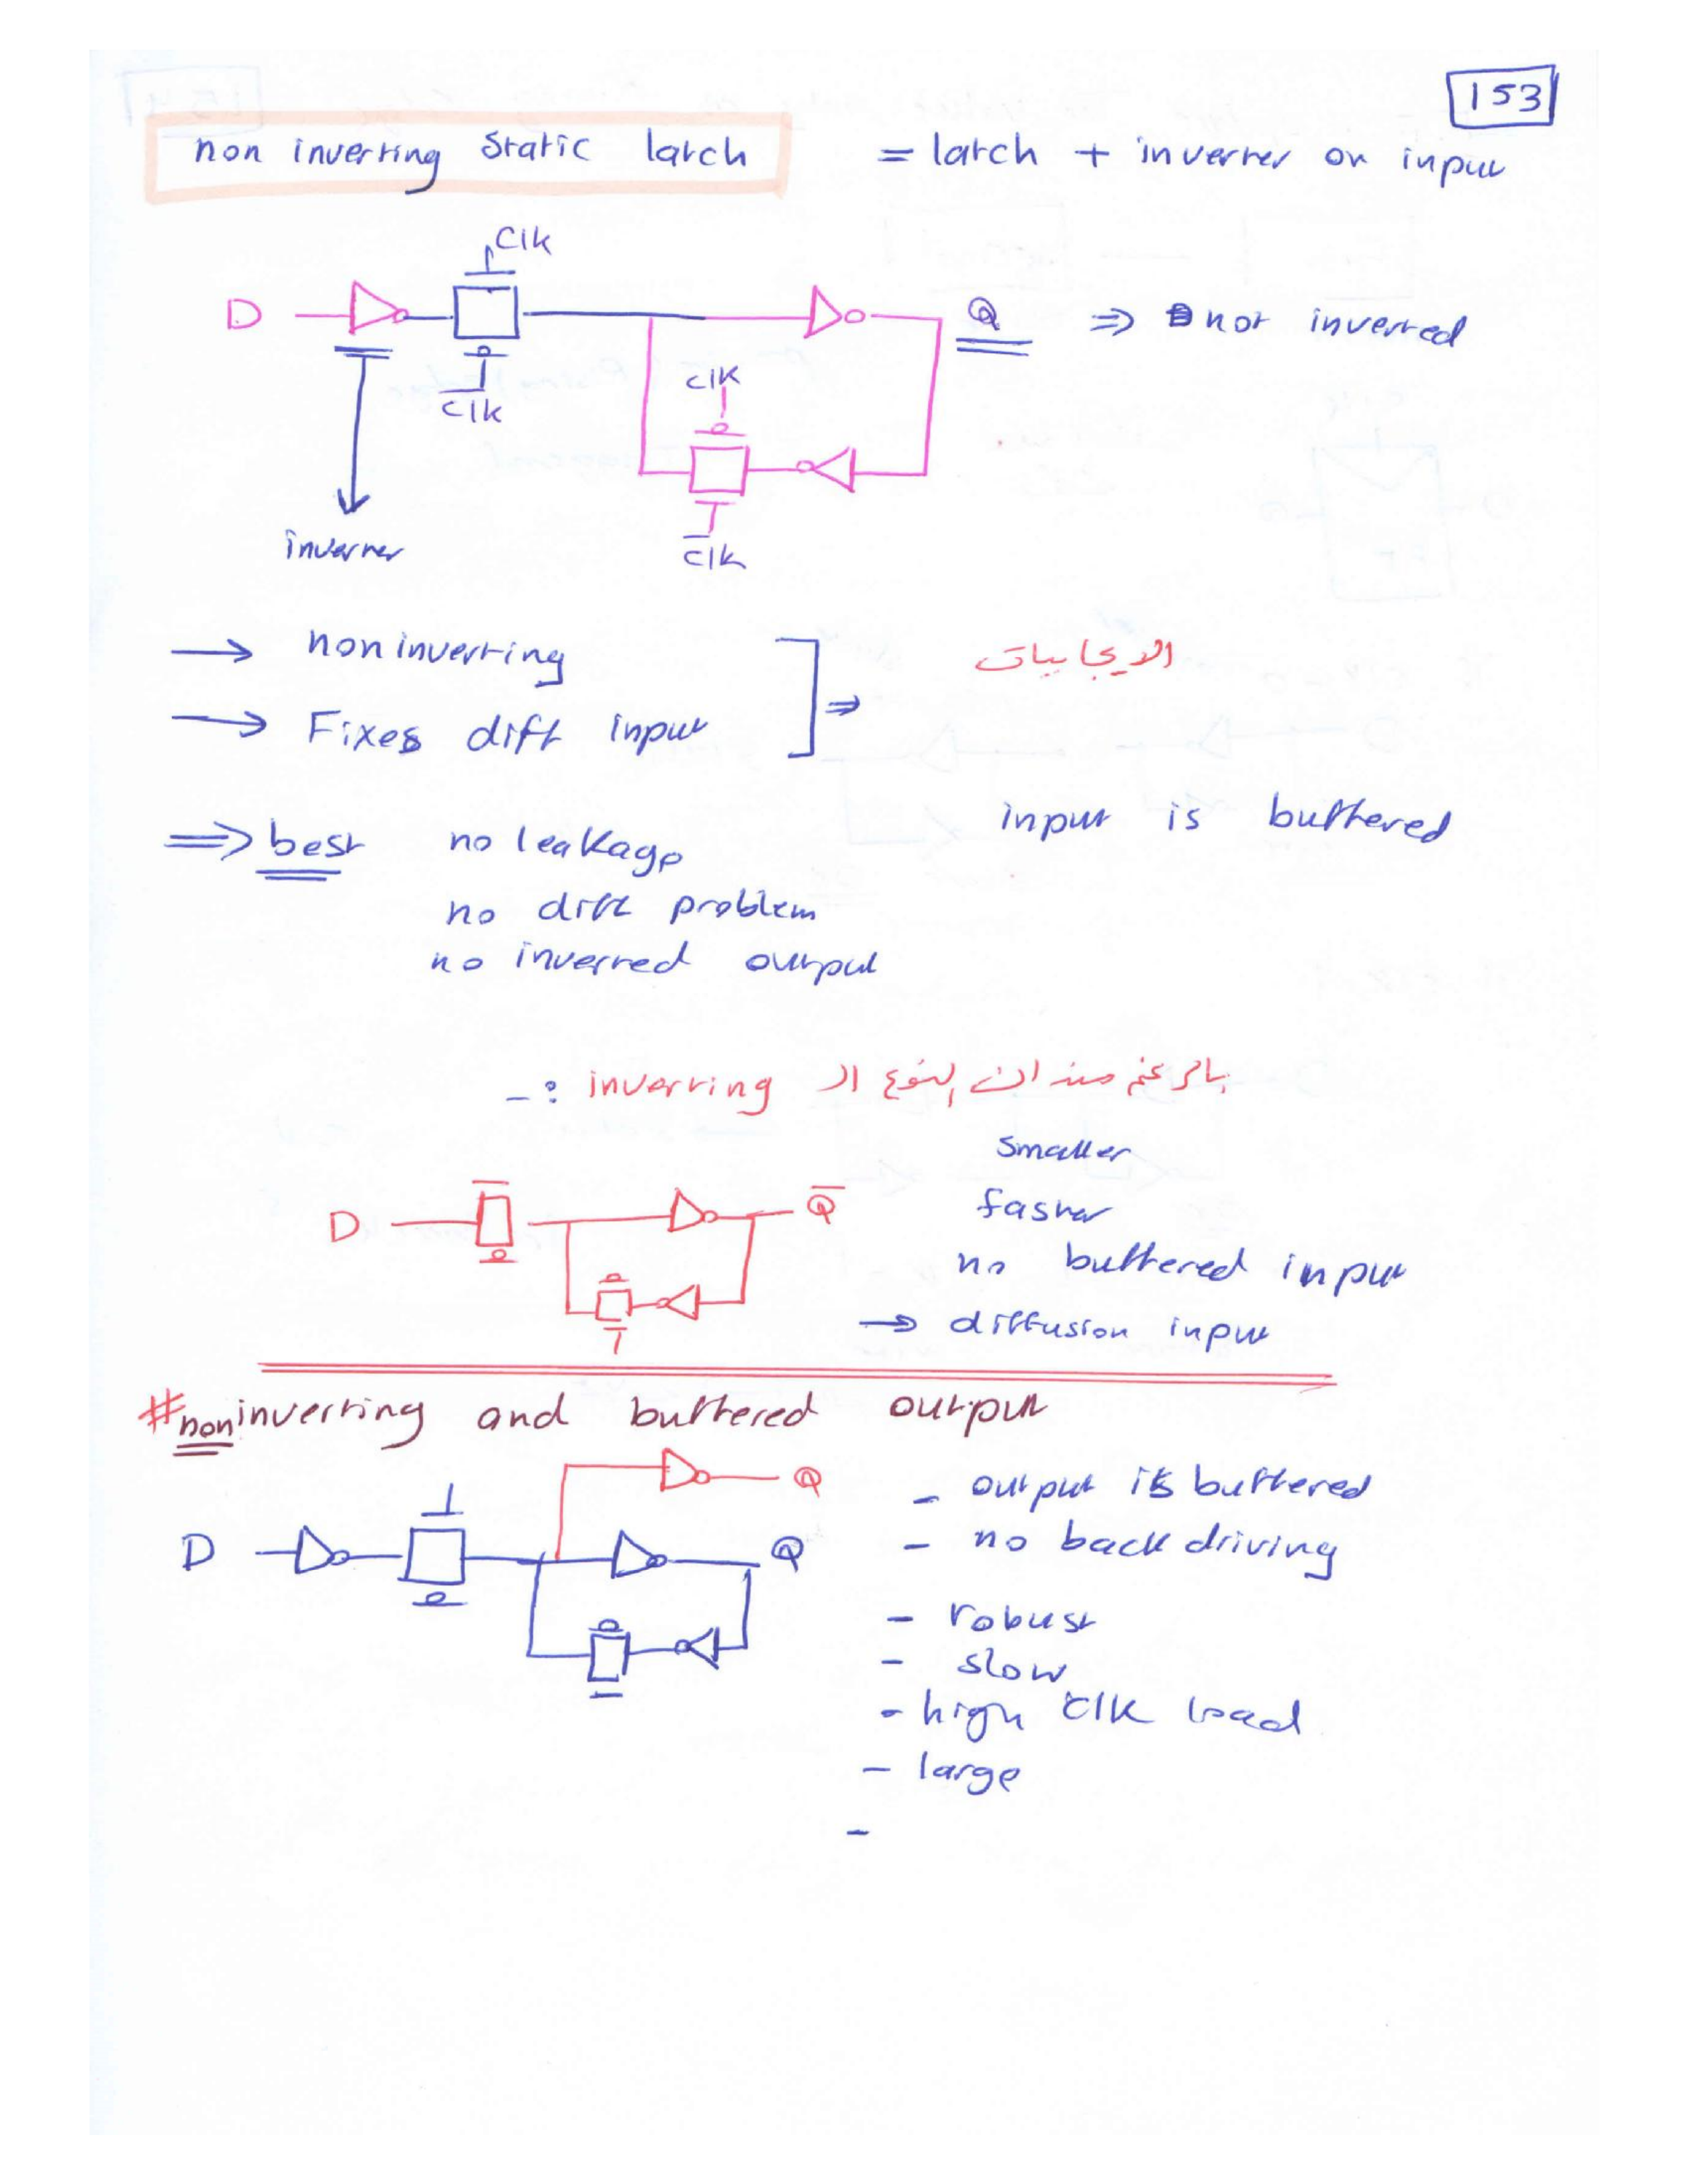 153
non inverting static latch = latch + inverter on input
Clk
D Q ⇒ not inverted
clk
clk
inverter
clk
→ noninverting
الايجابيات
→ Fixes diff input ⇒
input is buffered
⇒ best no leakage
no diff problem
no inverted output
بالرغم منه ان النوع ال inverting :-
smaller
D Q
faster
no buffered input
→ diffusion input
# noninverting and buffered output
Q
- output is buffered
D Q
- no back driving
- robust
- slow
- high clk load
- large
-